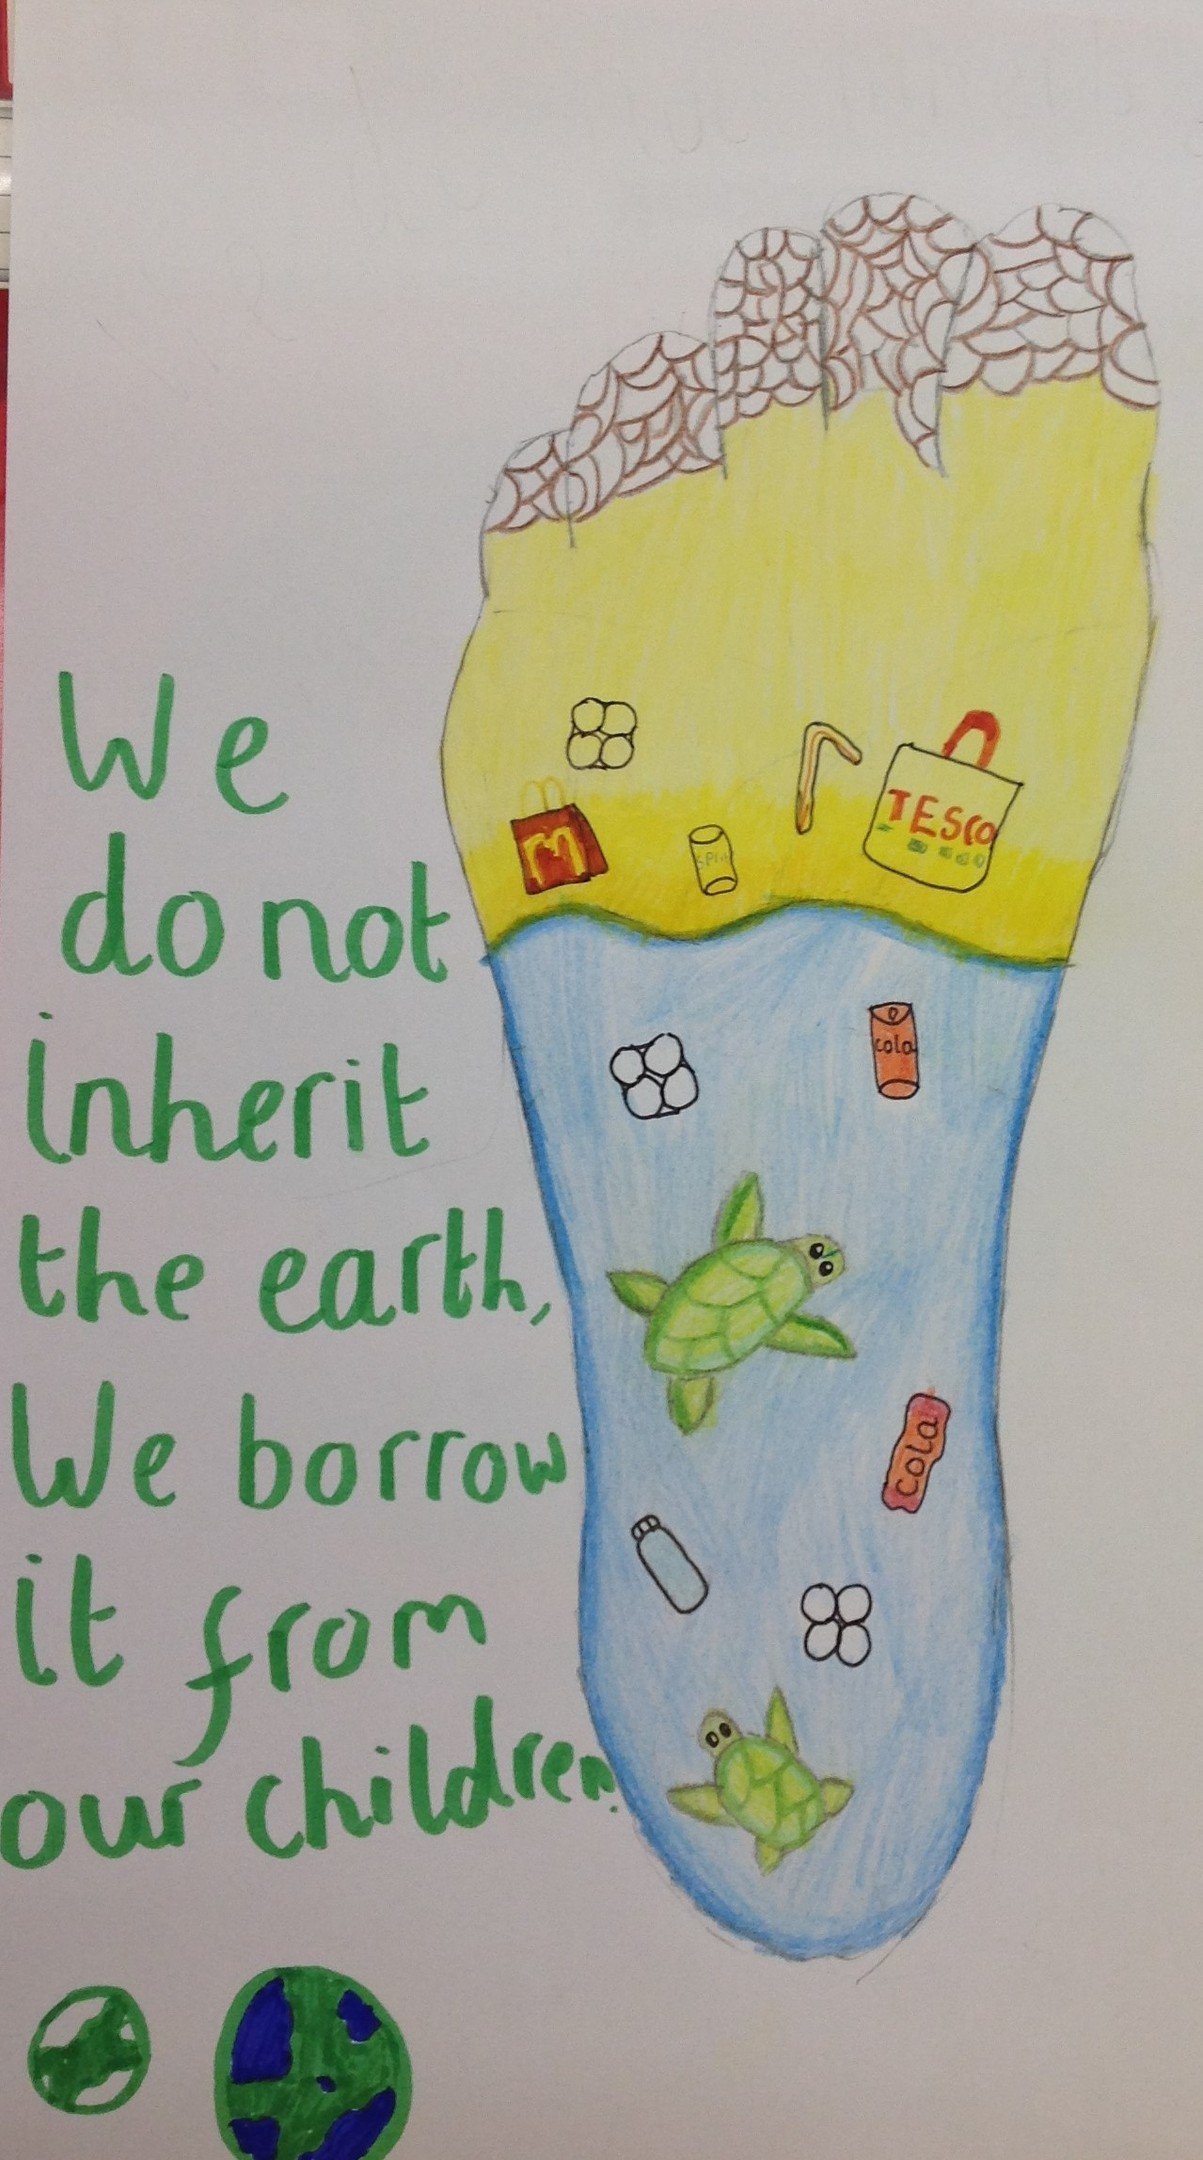 We
do not
inherit
the earth,
We borrow
it from
our children.
M
TESCO
cola
cola